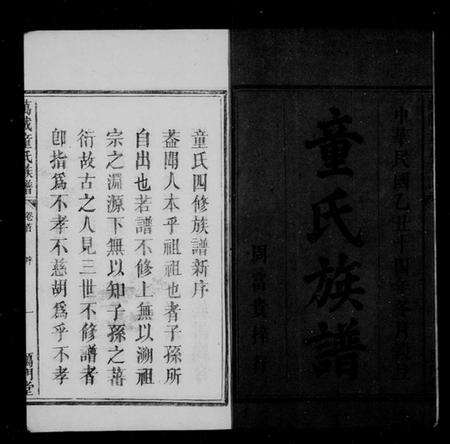 中華民國乙丑十四年
童氏族譜
童氏四修族譜新序
蓋聞人本乎祖祖也者子孫所
自出也若譜不修上無以溯祖
宗之淵源下無以知子孫之蕃
衍故古之人見三世不修譜者
卽指爲不孝不慈胡爲乎不孝
萬載童氏族譜
卷首
序
一